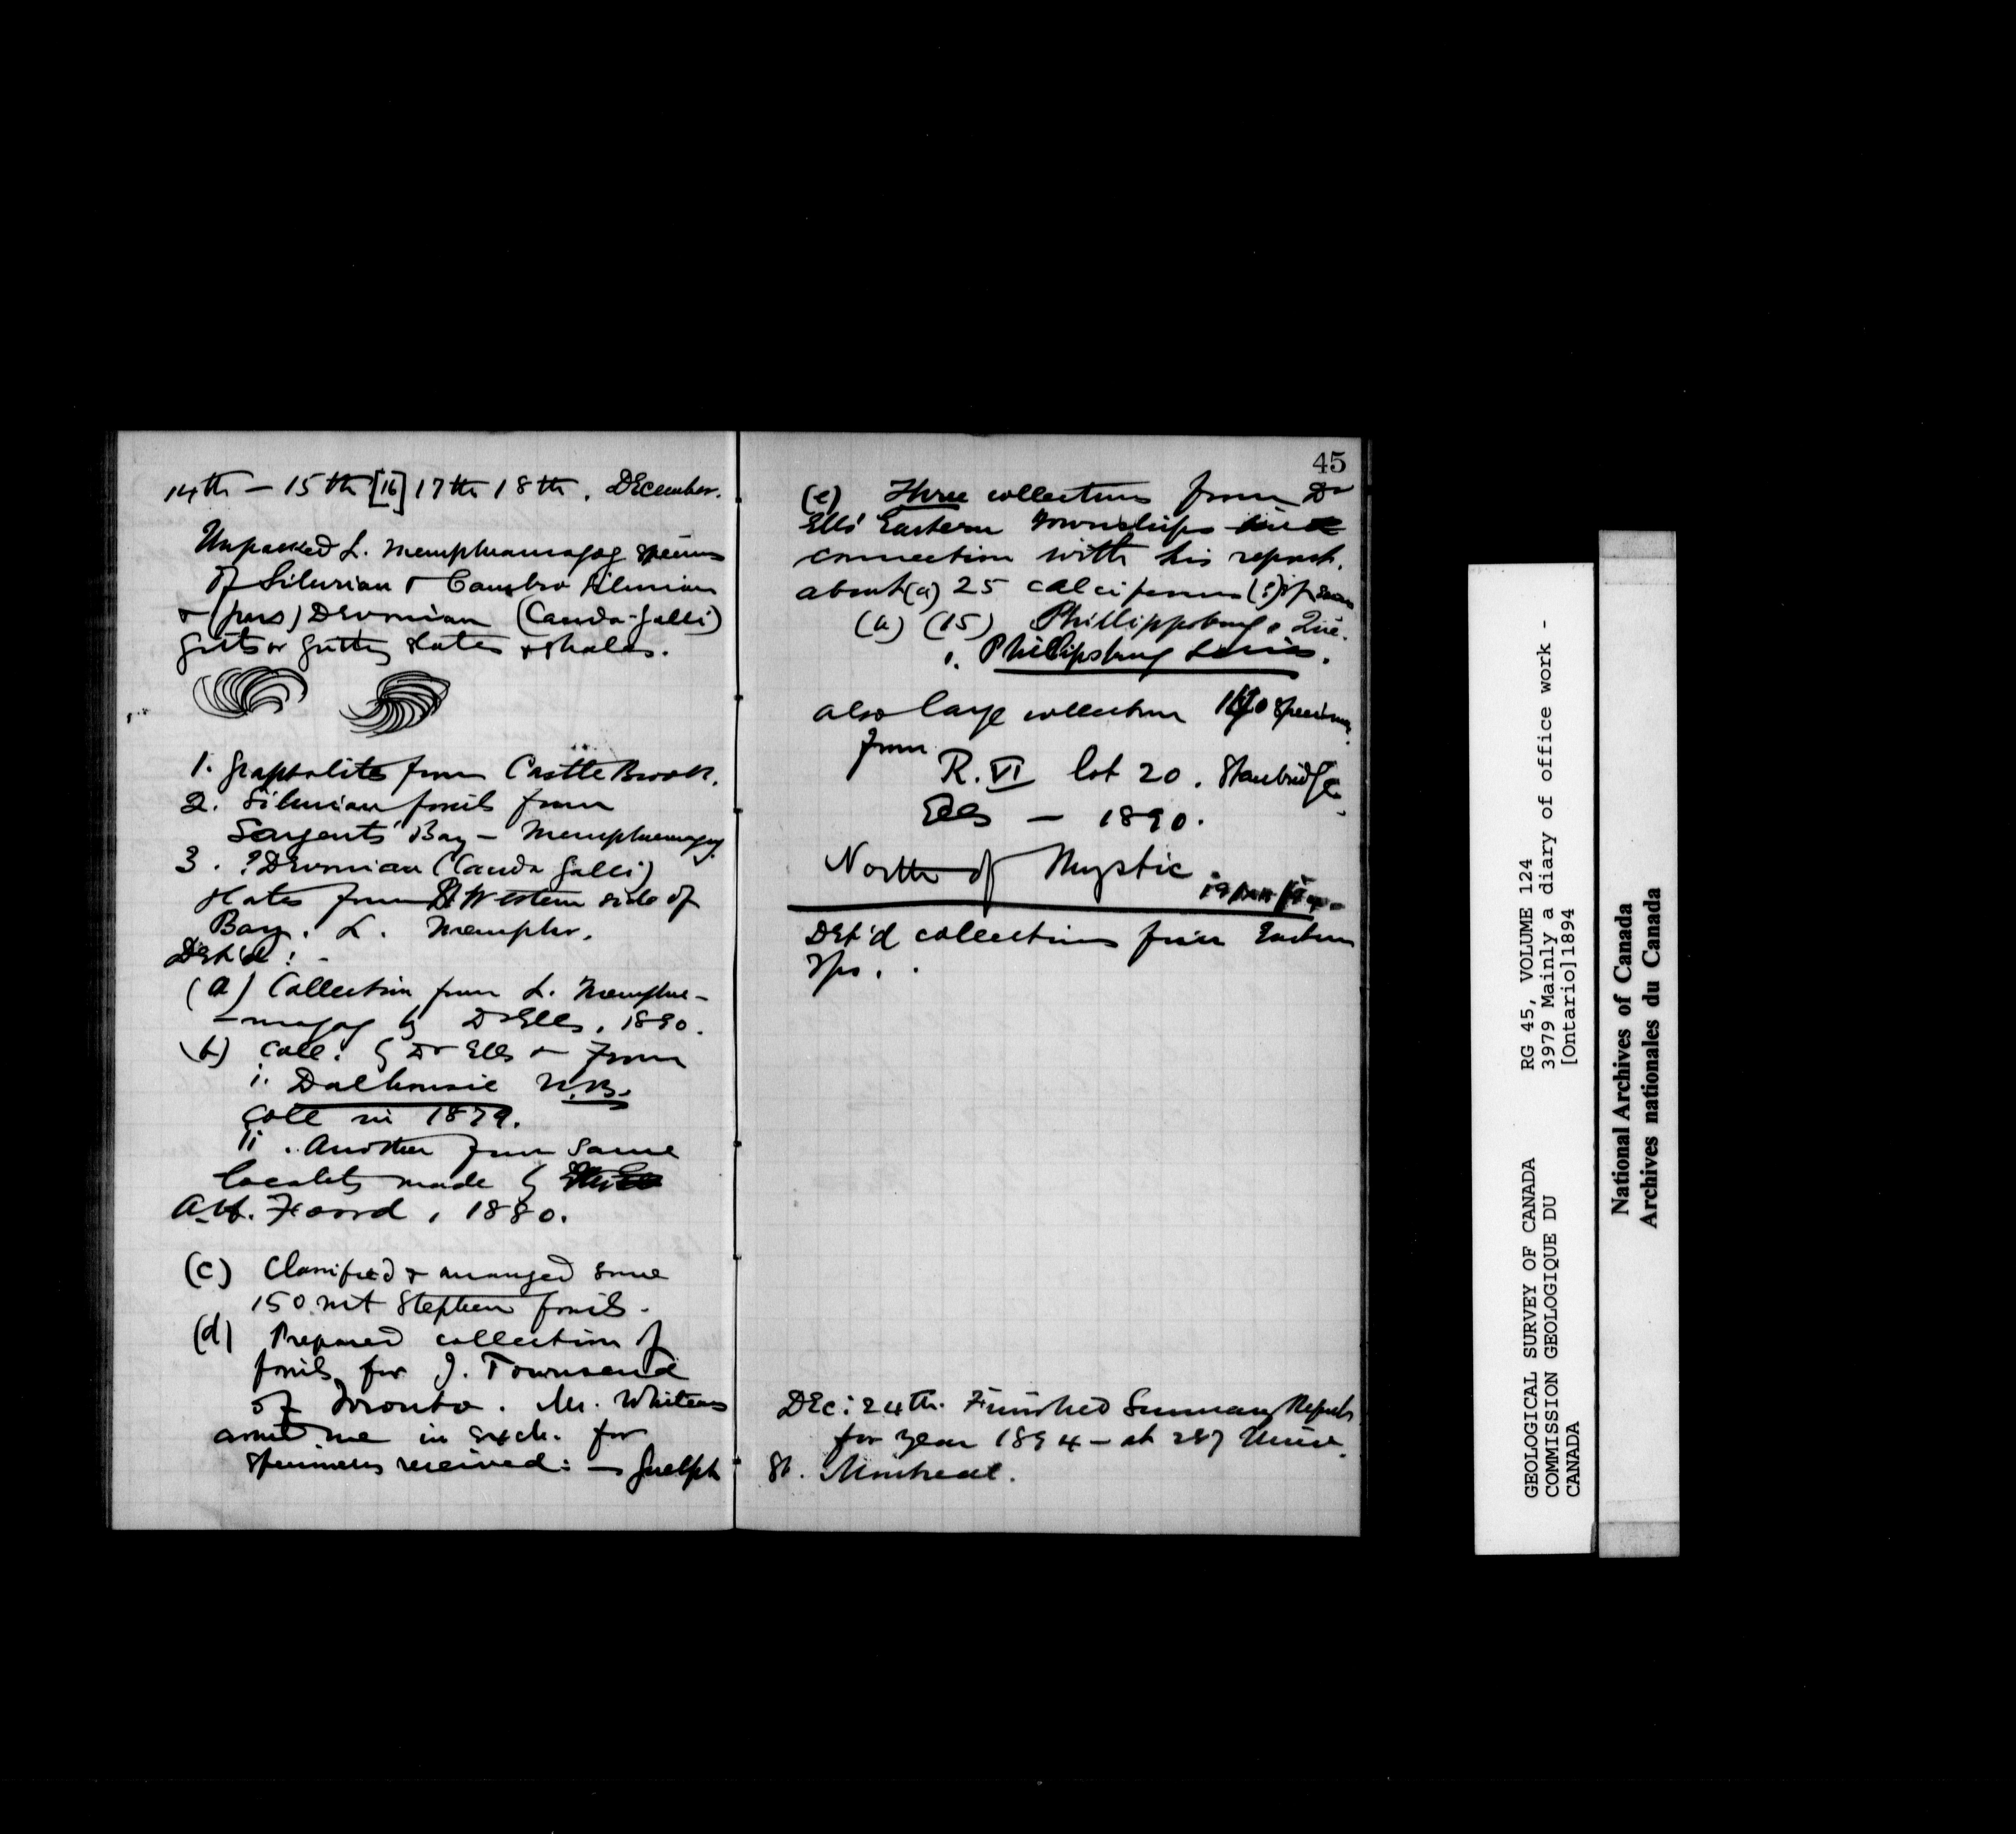 14th – 15th [16] 17th 18th. December.
Unpacked L. Memphramagog
of Silurian & Cambro Silurian
& (pars) Devonian (Cauda-galli)
grits or gritty slates & shales.
1. Graptolites from Castle Brook.
2. Silurian fossils from
Sargents' Bay – Memphremagog
3. ? Devonian (Cauda Galli)
slates from Western side of
Bay. L. Memphr.
Det'd: -
(a) Collection from L. Memphre-
-magog by Dr Ells. 1890.
(b) Coll. by Dr Ells – from
i. Dalhousie N.B.
Coll in 1879.
ii. Another from same
locality made by
A.H. Foord, 1880.
(c) Classified & arranged some
150 Mt Stephen fossils.
(d) Prepared collection of
fossils for J. Townsend
of Toronto. Mr. Whiteaves
me in exch. for
specimens received: – Guelph
45
(e) Three collections from Dr
Ells' Eastern Townships
connection with his report.
about (a) 25 calciferous (?)
(15) Phillippsburg, Que.
1. Philipsburg Series.
also large collection specimens
from
R. VI lot 20. Stanbridge
Ells – 1890.
North of Mystic
Det'd collections from Eastern
Tps.
Dec: 24th. Finished Summary Report
for year 1894 – at 287 Univ.
St. Montreal.
GEOLOGICAL SURVEY OF CANADA RG 45, VOLUME 124
COMMISSION GEOLOGIQUE DU 3979 Mainly a diary of office work -
CANADA [Ontario]1894
National Archives of Canada
Archives nationales du Canada